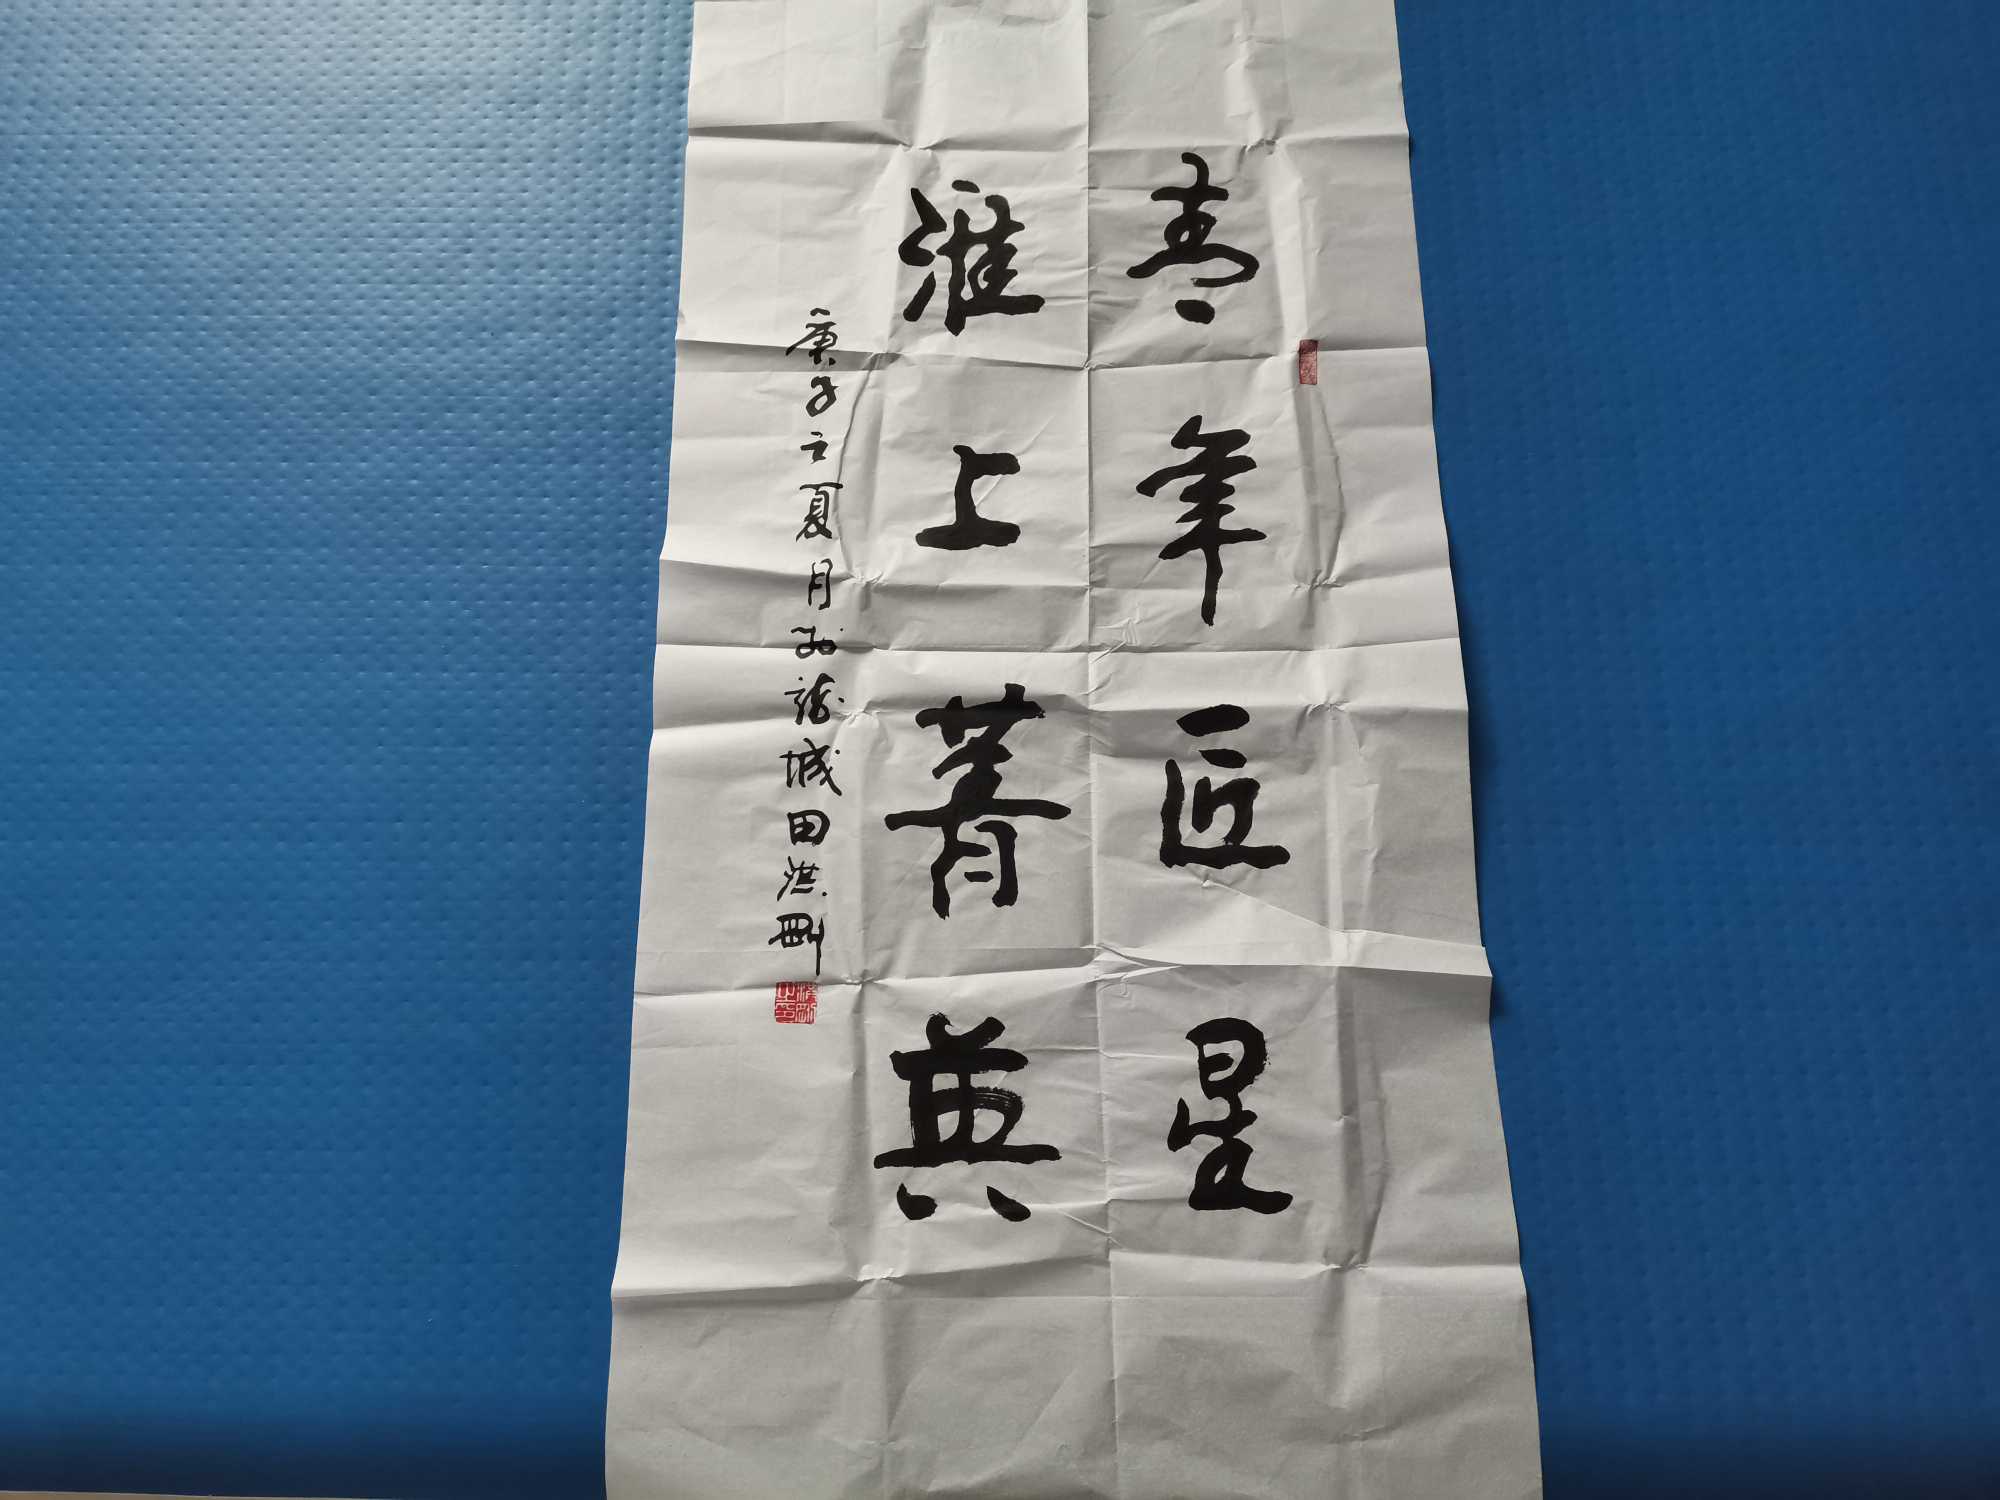 青年匠星
淮上菁英
庚子之夏月於龍城田洪剛